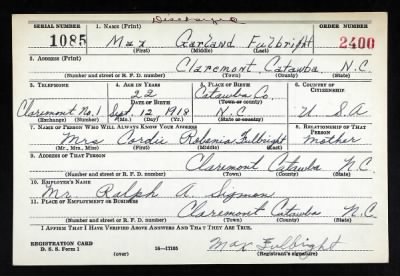 Discharged
SERIAL NUMBER 1. NAME (Print) ORDER NUMBER
1085 Max Garland Fulbright 2400
(First) (Middle) (Last)
2. ADDRESS (Print)
Claremont Catawba N.C.
(Number and street or R. F. D. number) (Town) (County) (State)
3. TELEPHONE 4. AGE IN YEARS 5. PLACE OF BIRTH 6. COUNTRY OF CITIZENSHIP
22 Catawba Co.
DATE OF BIRTH (Town or county)
Claremont No. 1 Sept 12 1918 N.C. U S A
(Exchange) (Number) (Mo.) (Day) (Yr.) (State or country)
7. NAME OF PERSON WHO WILL ALWAYS KNOW YOUR ADDRESS 8. RELATIONSHIP OF THAT PERSON
Mrs Cordie Fulbright Mother
(Mr., Mrs., Miss) (First) (Middle) (Last)
9. ADDRESS OF THAT PERSON
Claremont Catawba N.C.
(Number and street or R. F. D. number) (Town) (County) (State)
10. EMPLOYER'S NAME
Mr. Ralph A. Sigmon
11. PLACE OF EMPLOYMENT OR BUSINESS
Claremont Catawba N.C.
(Number and street or R. F. D. number) (Town) (County) (State)
I AFFIRM THAT I HAVE VERIFIED ABOVE ANSWERS AND THAT THEY ARE TRUE.
REGISTRATION CARD
D. S. S. Form 1 16—17105 Max Fulbright
(over) (Registrant's signature)